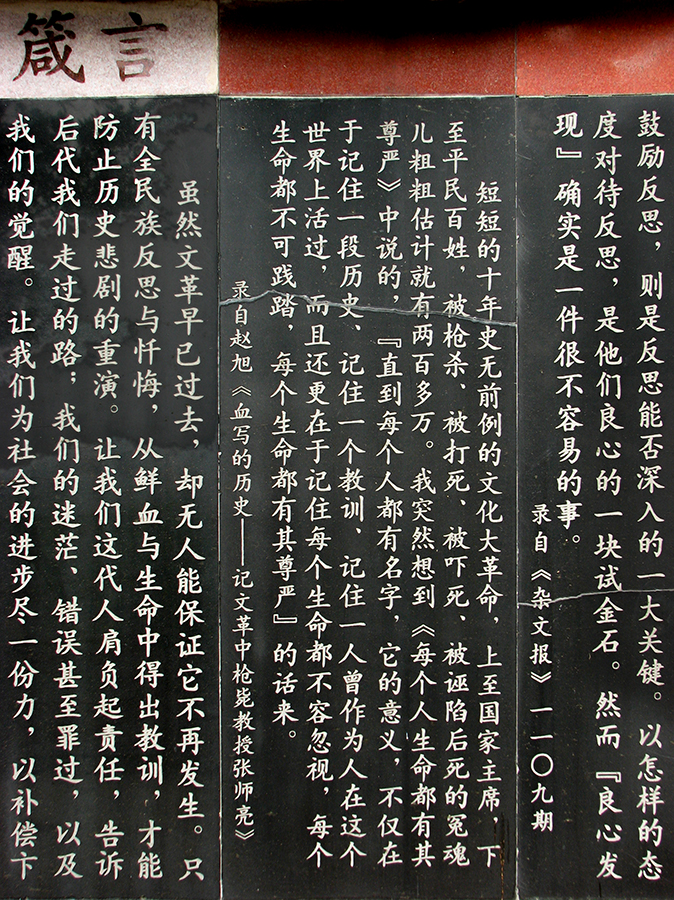 鼓励反思，则是反思能否深入的一大关键。以怎样的态
度对待反思，是他们良心的一块试金石。然而『良心发
现』确实是一件很不容易的事。
录自《杂文报》一一〇九期
短短的十年史无前例的文化大革命，上至国家主席，下
至平民百姓，被枪杀、被打死、被吓死、被诬陷后死的冤魂
儿粗粗估计就有两百多万。我突然想到《每个人生命都有其
尊严》中说的，『直到每个人都有名字，它的意义，不仅在
于记住一段历史、记住一个教训、记住一人曾作为人在这个
世界上活过，而且还更在于记住每个生命都不容忽视，每个
生命都不可践踏，每个生命都有其尊严』的话来。
录自赵旭《血写的历史——记文革中枪毙教授张师亮》
箴言
虽然文革早已过去，却无人能保证它不再发生。只
有全民族反思与忏悔，从鲜血与生命中得出教训，才能
防止历史悲剧的重演。让我们这代人肩负起责任，告诉
后代我们走过的路；我们的迷茫、错误甚至罪过，以及
我们的觉醒。让我们为社会的进步尽一份力，以补偿卞